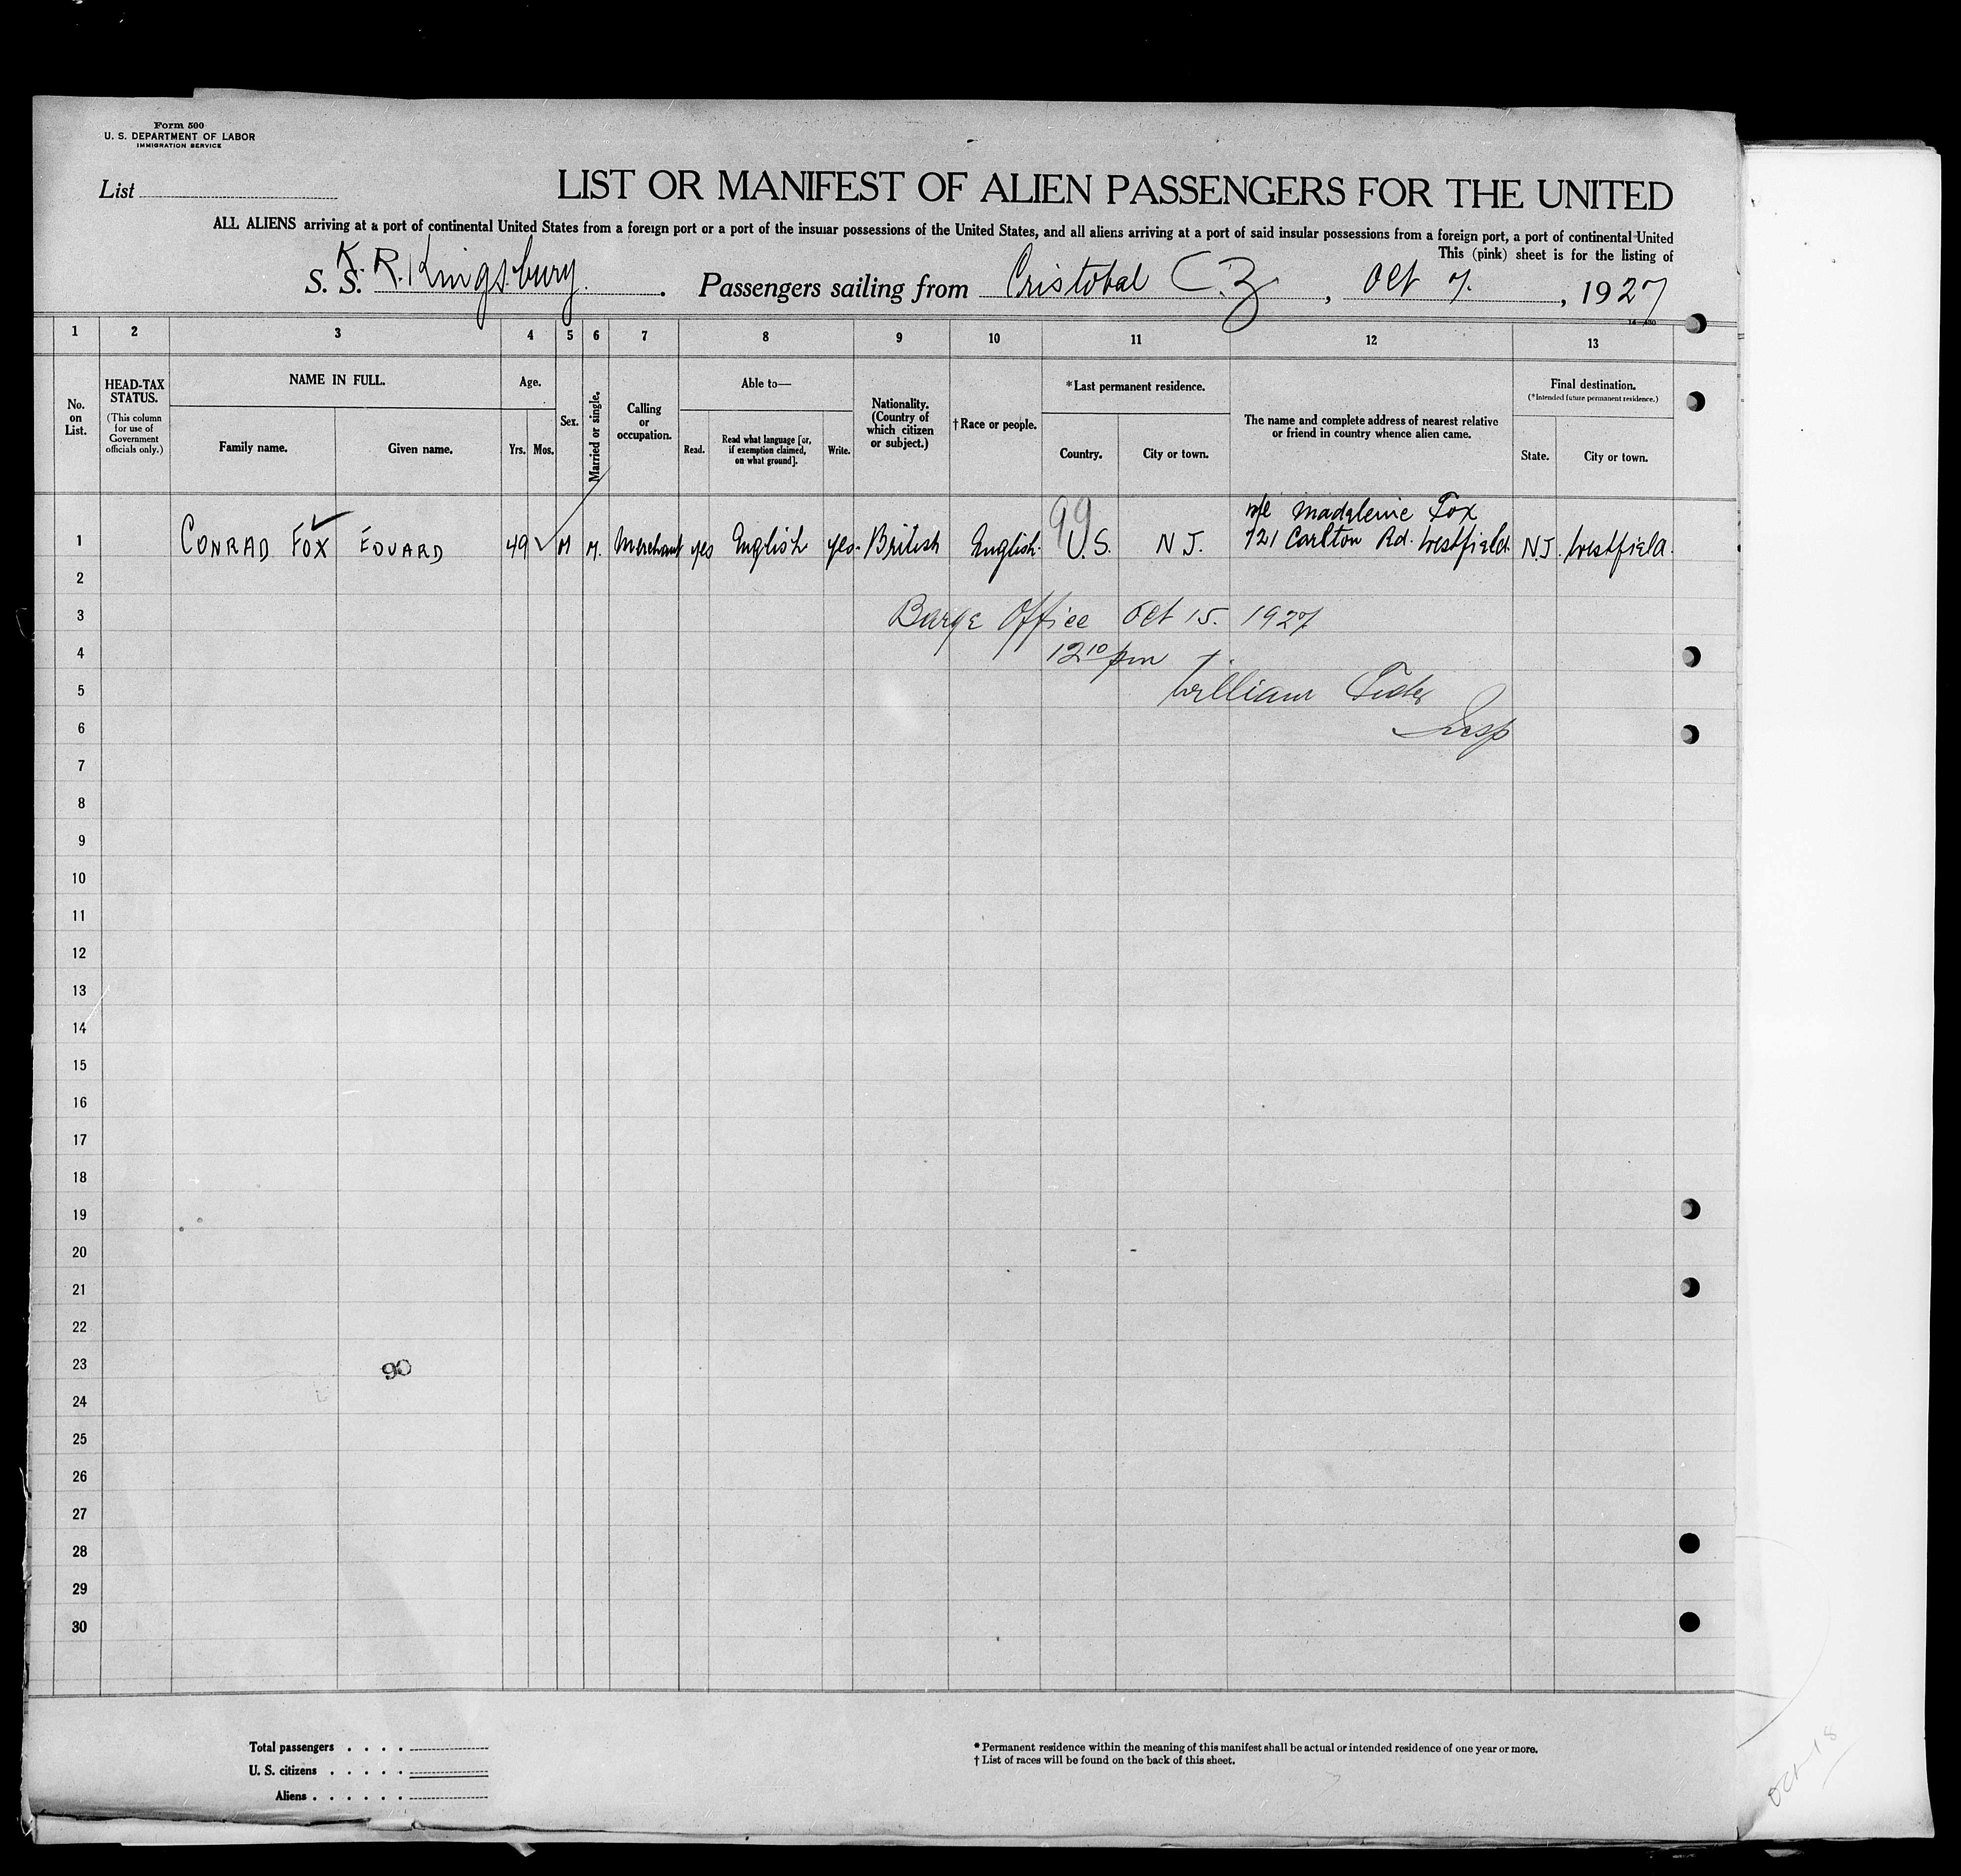 Form 500
U. S. DEPARTMENT OF LABOR
IMMIGRATION SERVICE
List
LIST OR MANIFEST OF ALIEN PASSENGERS FOR THE UNITED
ALL ALIENS arriving at a port of continental United States from a foreign port or a port of the insular possessions of the United States, and all aliens arriving at a port of said insular possessions from a foreign port, a port of continental United
This (pink) sheet is for the listing of
S. S. K. R. Kingsbury. Passengers sailing from Cristobal C.Z., Oct 7., 1927
1 2 3 4 5 6 7 8 9 10 11 12 13
No. on List.
HEAD-TAX STATUS.
(This column for use of Government officials only.)
NAME IN FULL.
Family name. Given name.
Age.
Yrs. Mos.
Sex.
Married or single.
Calling or occupation.
Able to—
Read. Read what language [or, if exemption claimed, on what ground]. Write.
Nationality. (Country of which citizen or subject.)
†Race or people.
*Last permanent residence.
Country. City or town.
The name and complete address of nearest relative or friend in country whence alien came.
Final destination.
(*Intended future permanent residence.)
State. City or town.
99 Madeleine Fox
1 CONRAD FOX EDUARD 49 M M. Merchant yes English yes. British English. U.S. N J. 721 Carlton Rd. Westfield. N.J. Westfield.
2
3 Barge Office Oct 15. 1927
4 12 10 pm
5 William
6 Insp
7
8
9
10
11
12
13
14
15
16
17
18
19
20
21
22
23 90
24
25
26
27
28
29
30
Total passengers
U. S. citizens
Aliens
* Permanent residence within the meaning of this manifest shall be actual or intended residence of one year or more.
† List of races will be found on the back of this sheet.
Oct 18